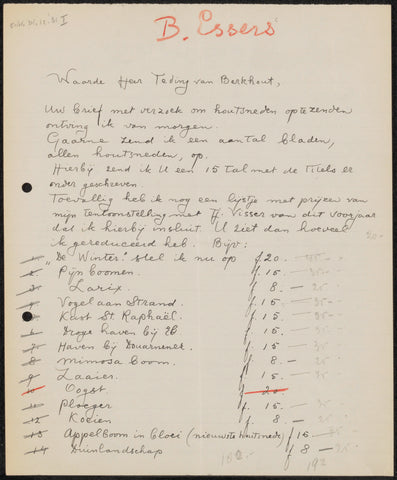 I
B. Essers
Waarde Heer Teding van Berkhout,
Uw brief met verzoek om houtsneden op te zenden
ontving ik van morgen.
Gaarne zend ik een aantal bladen,
allen houtsneden, op.
Hierbij zend ik U een 15 tal met de titels er
onder geschreven.
Toevallig heb ik nog een lijstje met prijzen van
mijn tentoonstelling met Tj. Visser van dit voorjaar
dat ik hierbij insluit. U ziet dan hoeveel
ik gereduceerd heb. Bijv:
1 "De Winter" stel ik nu op f 20.—
2 Pijnboomen. f. 15.—
3 Larix. f 8.—
4 Vogel aan Strand. f. 15.—
5 Kust St. Raphaël. f 15.—
6 Droge haven bij Eb f 15.—
7 Haven bij Douarnenez f. 15.—
8 Mimosa boom. f. 8.—
9 Zaaier. f. 15.—
10 Oogst. f 20.—
11 Ploeger f. 15.—
12 Koeien f. 8.—
13 Appelboom in bloei (nieuwste houtsnede) f 15—
14 Duinlandschap f 8—
192